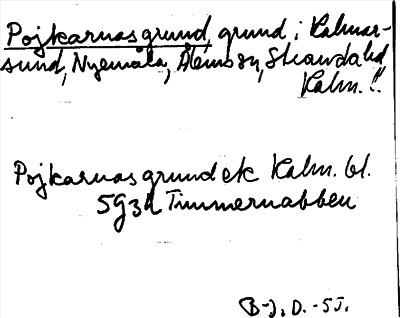 Pojkarnas grund, grund i Kalmar-
sund, Nyemåla, Ålems sn, Stranda hd
Kalm. l.
Pojkarnas grund ek Kalm. bl.
5g3d Timmernabben
B-J. D. -55.